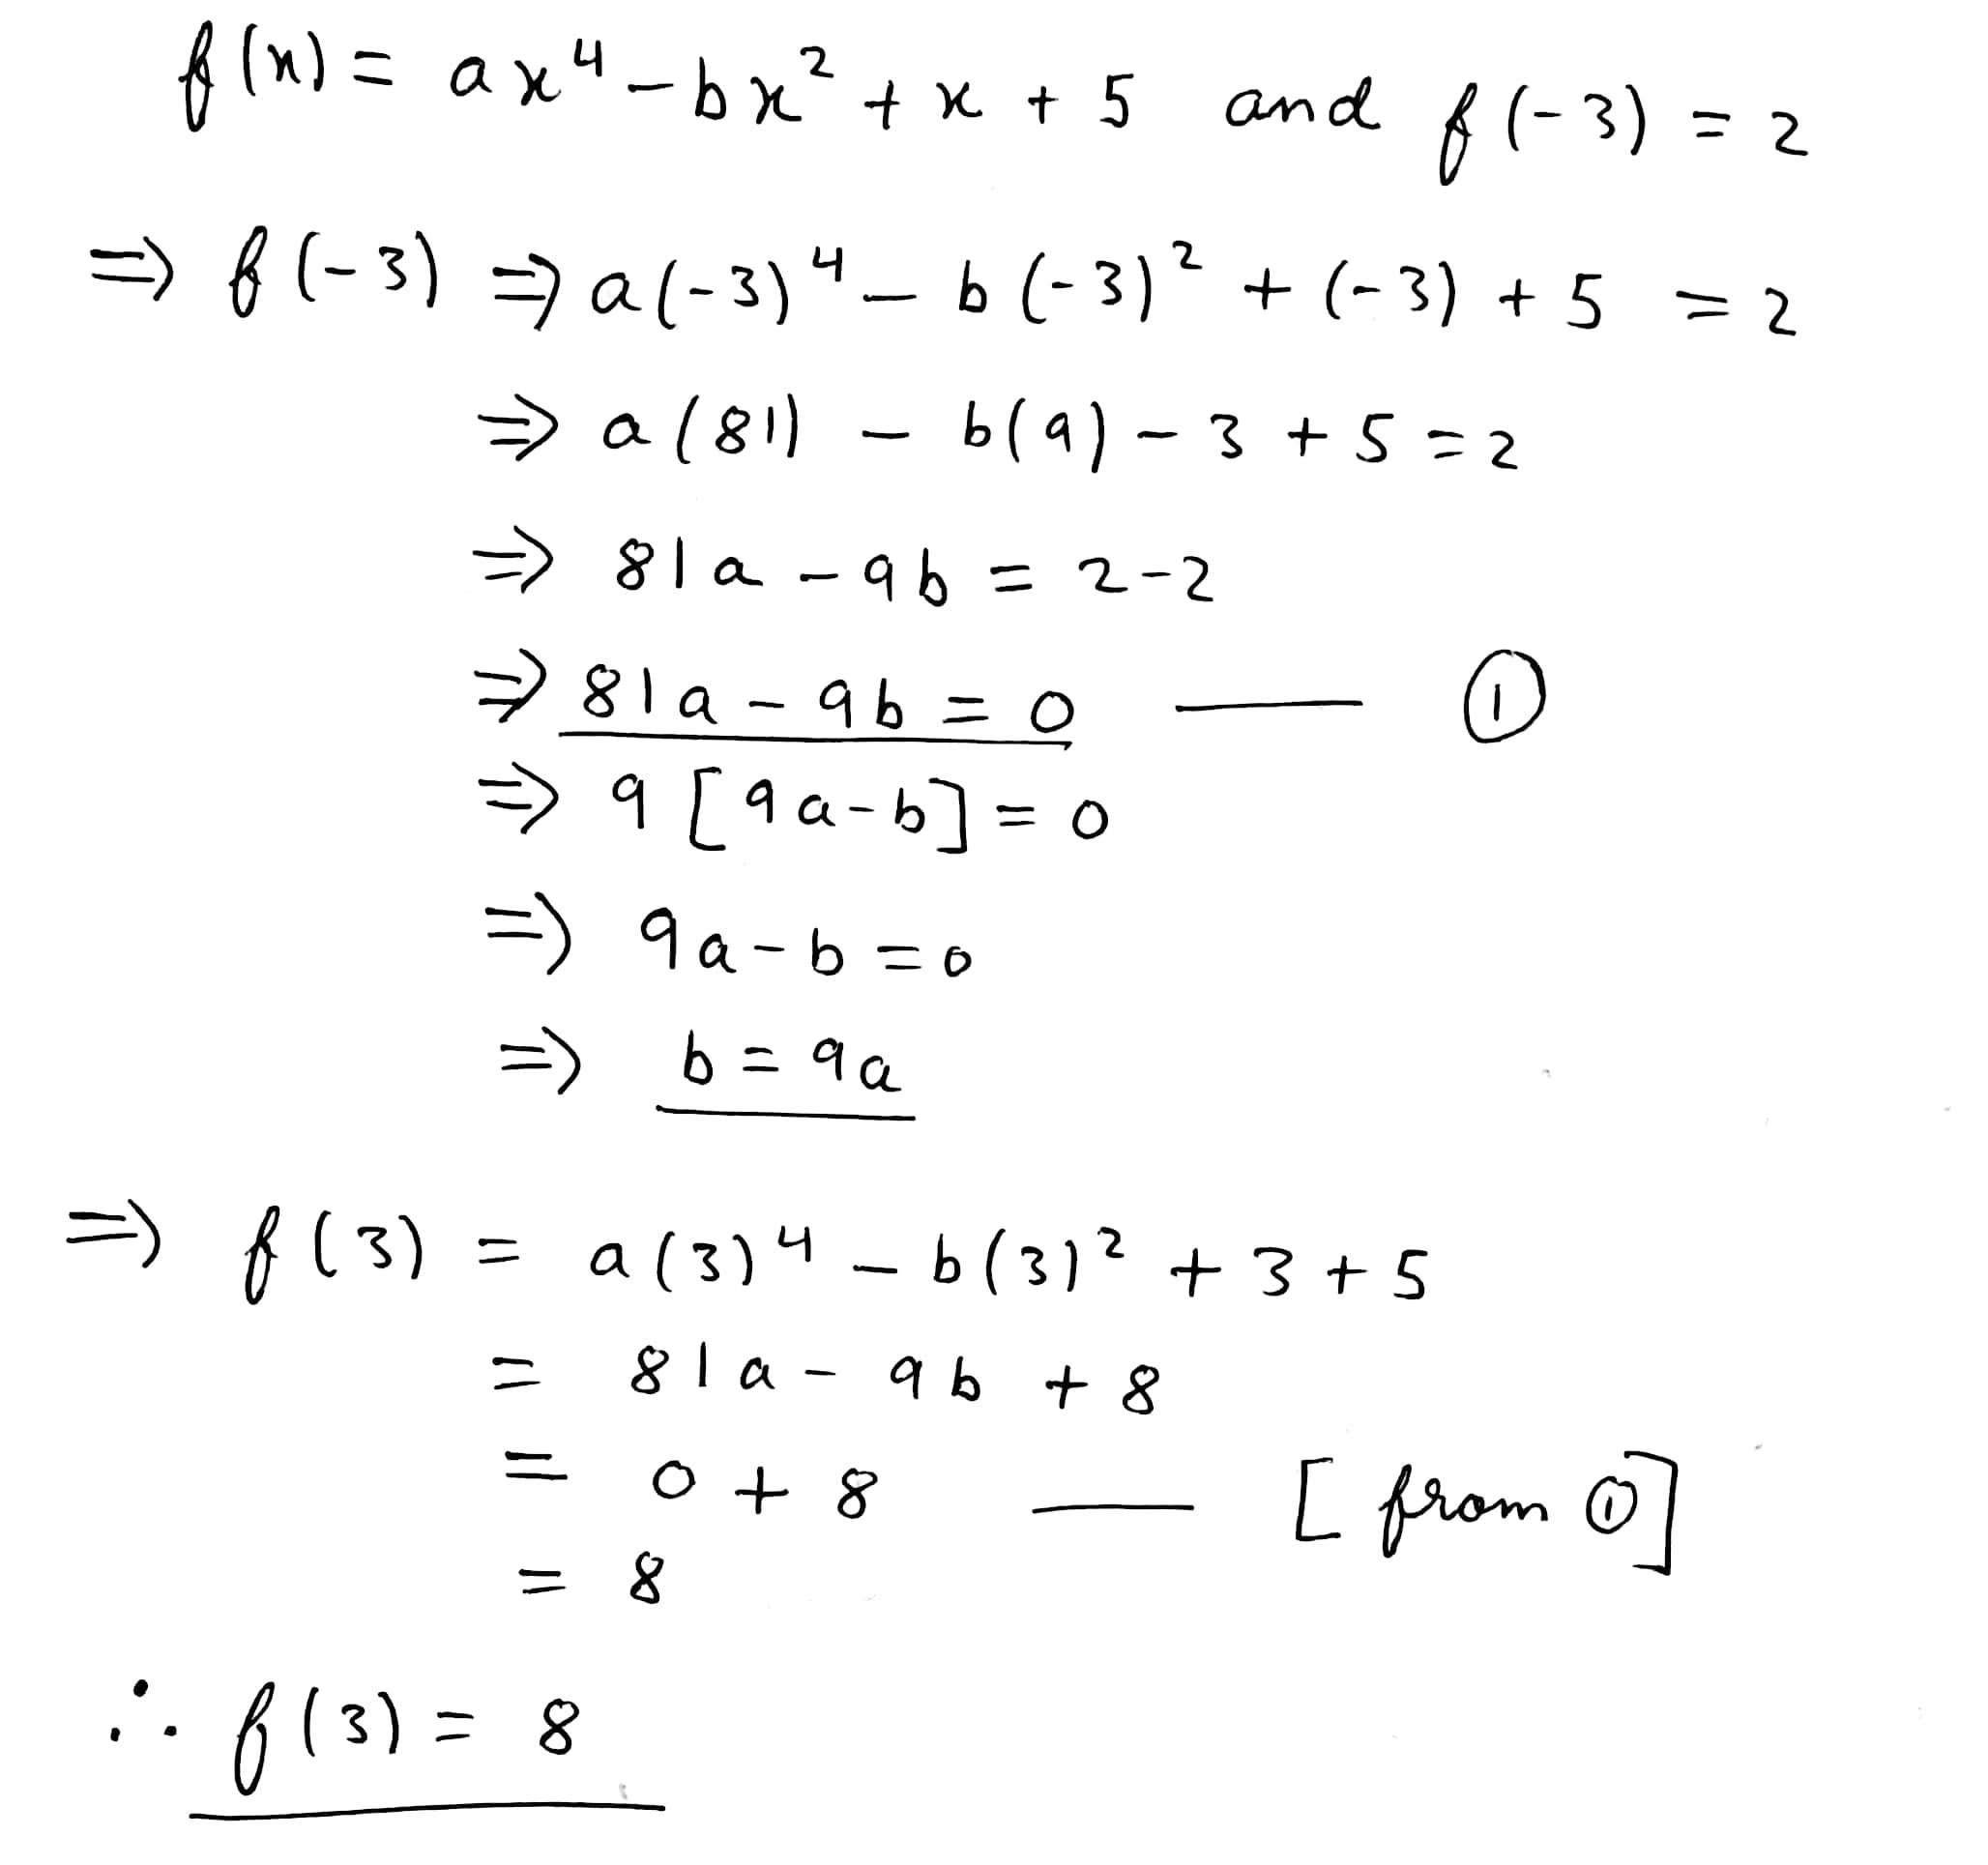 f(x) = ax⁴ - bx² + x + 5 and f(-3) = 2
⇒ f(-3) ⇒ a(-3)⁴ - b(-3)² + (-3) + 5 = 2
⇒ a(81) - b(9) - 3 + 5 = 2
⇒ 81a - 9b = 2-2
⇒ 81a - 9b = 0 — ①
⇒ 9[9a-b] = 0
⇒ 9a-b = 0
⇒ b = 9a
⇒ f(3) = a(3)⁴ - b(3)² + 3 + 5
= 81a - 9b + 8
= 0 + 8 — [from ①]
= 8
∴ f(3) = 8